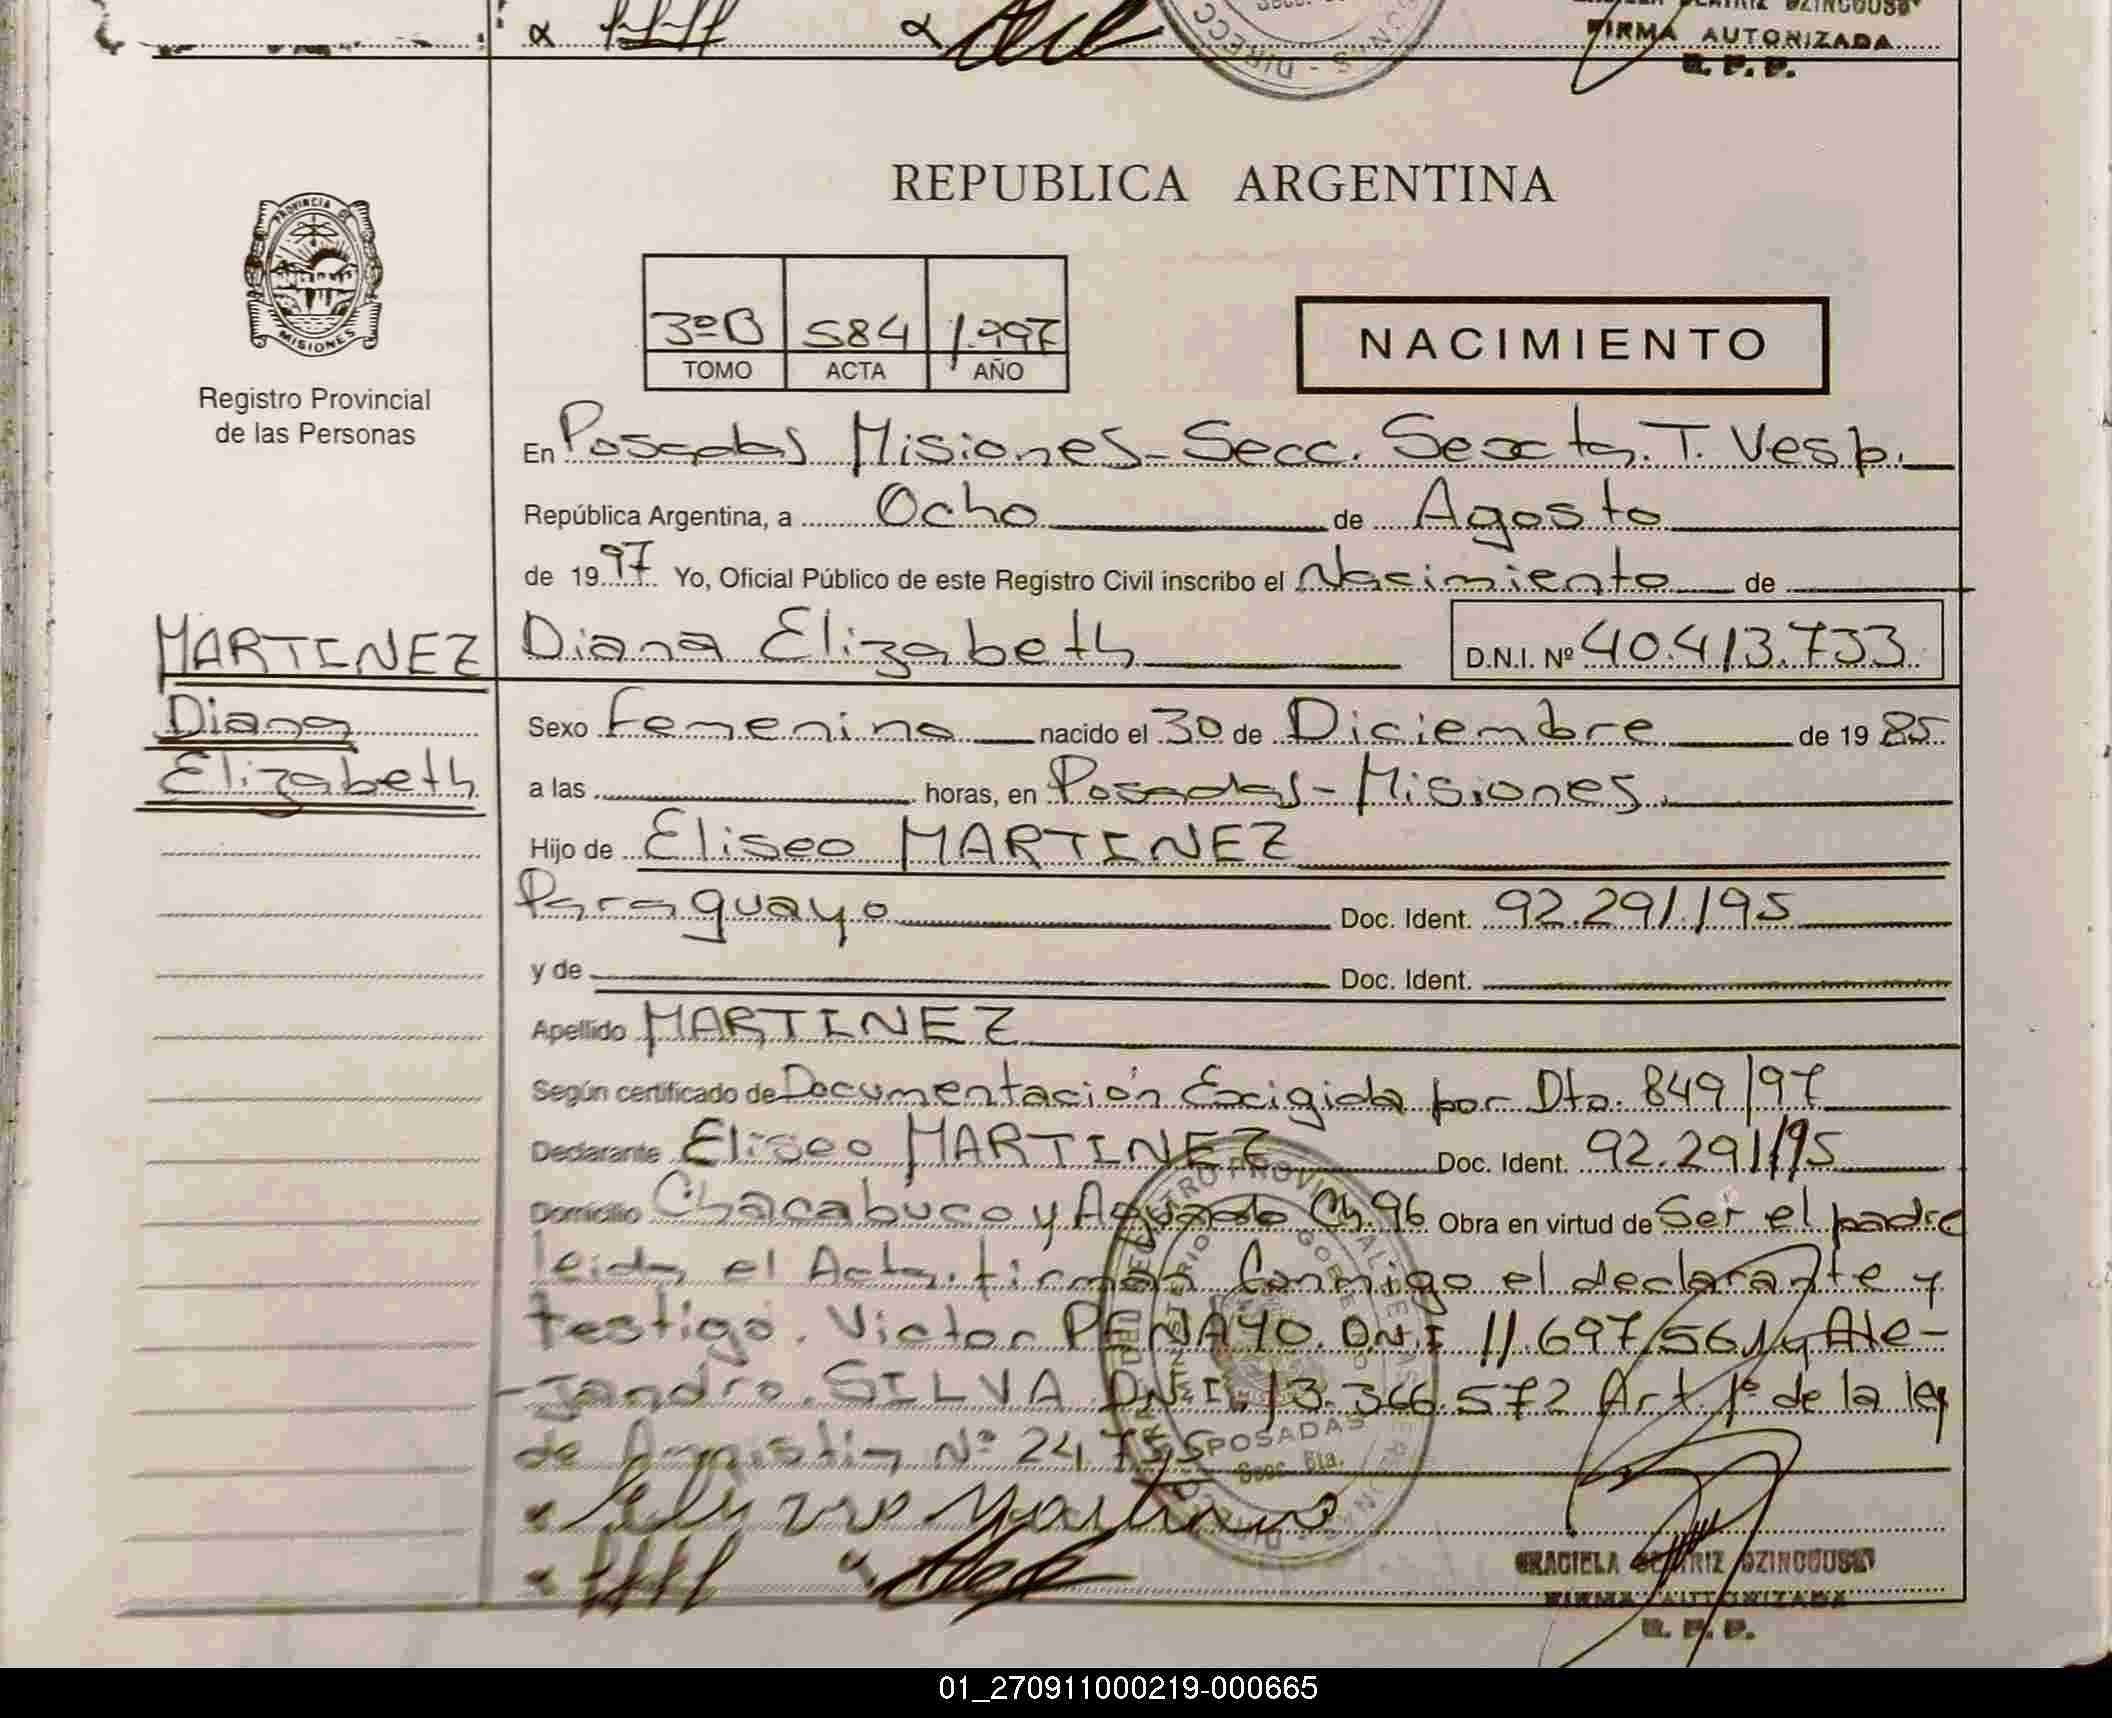 FIRMA AUTORIZADA
R. P. P.
REPUBLICA ARGENTINA
PROVINCIA DE
MISIONES
Registro Provincial
de las Personas
3ºB 584 1.997
TOMO ACTA AÑO
NACIMIENTO
En Posadas Misiones - Secc. Sexta. T. Vesp.
República Argentina, a Ocho de Agosto
de 1997 Yo, Oficial Público de este Registro Civil inscribo el Nacimiento de
MARTINEZ Diana Elizabeth D.N.I. Nº 40.413.733
Diana
Elizabeth
Sexo Femenino nacido el 30 de Diciembre de 1985
a las horas, en Posadas - Misiones.
Hijo de Eliseo MARTINEZ
Paraguayo Doc. Ident. 92.291.195
y de Doc. Ident.
Apellido MARTINEZ
Según certificado de Documentación Exigida por Dto. 849/97
Declarante Eliseo MARTINEZ Doc. Ident. 92.291.195
Domicilio Chacabuco y Aguado Ch. 96 Obra en virtud de Ser el padre
leida el Acta, firman Conmigo el declarante y
testigo. Victor PENAYO. D.N.I 11.697.561 y Ale-
-jandro. SILVA D.N.I. 13.366.572 Art. 1º de la ley
de Amnistia Nº 24.755
POSADAS
Secc. 6ta.
GRACIELA BEATRIZ
FIRMA AUTORIZADA
R. P. P.
01_270911000219-000665